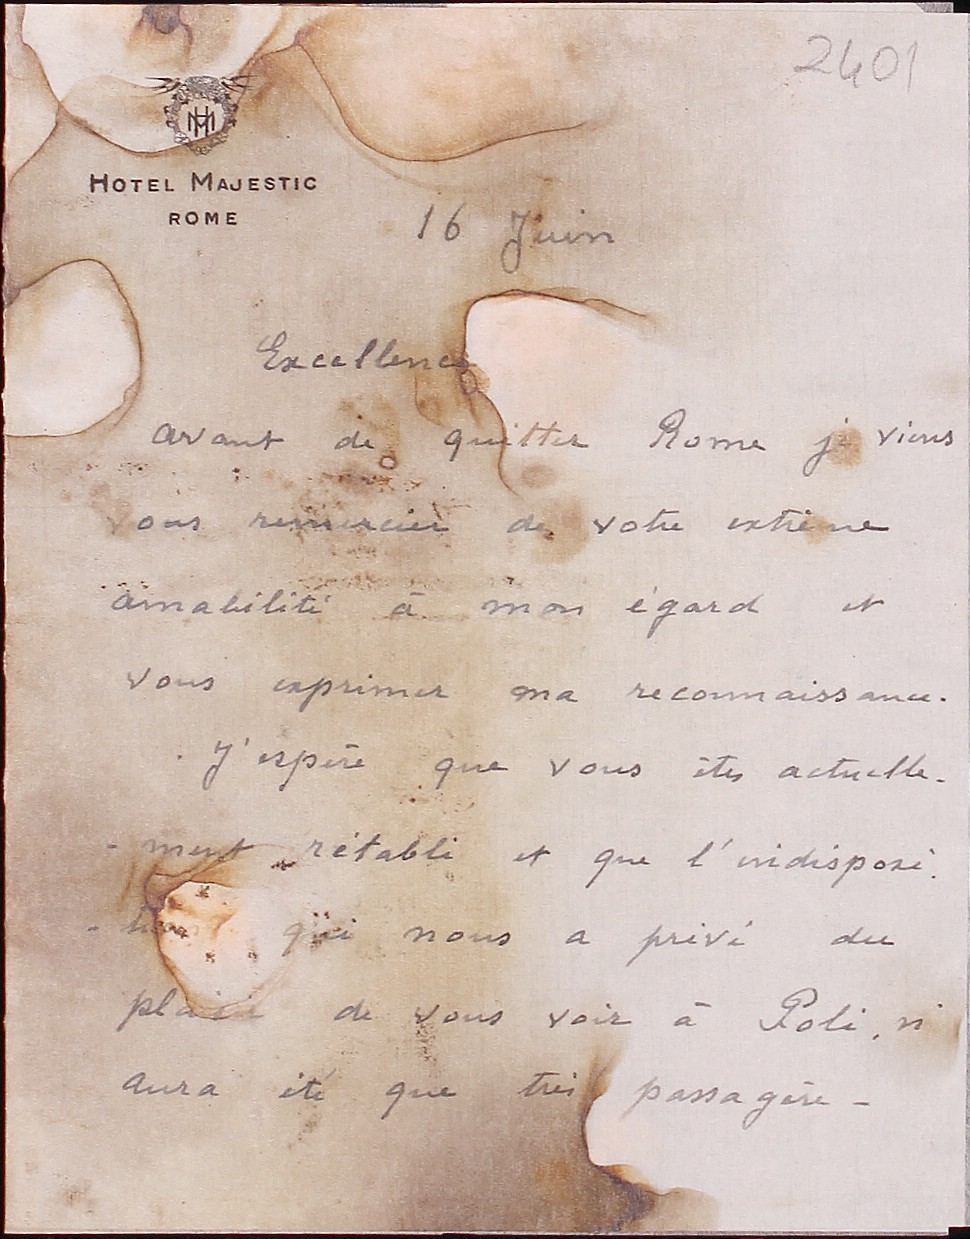 2401
HM
HOTEL MAJESTIC
ROME
16 Juin
Excellence
avant de quitter Rome je viens
vous remercier de votre extrème
amabilité à mon égard et
vous exprimer ma reconnaissance.
J'espère que vous êtes actuelle-
-ment rétabli et que l'indisposi-
-tion qui nous a privé du
plaisir de vous voir à Poli, n'
aura été que très passagère -